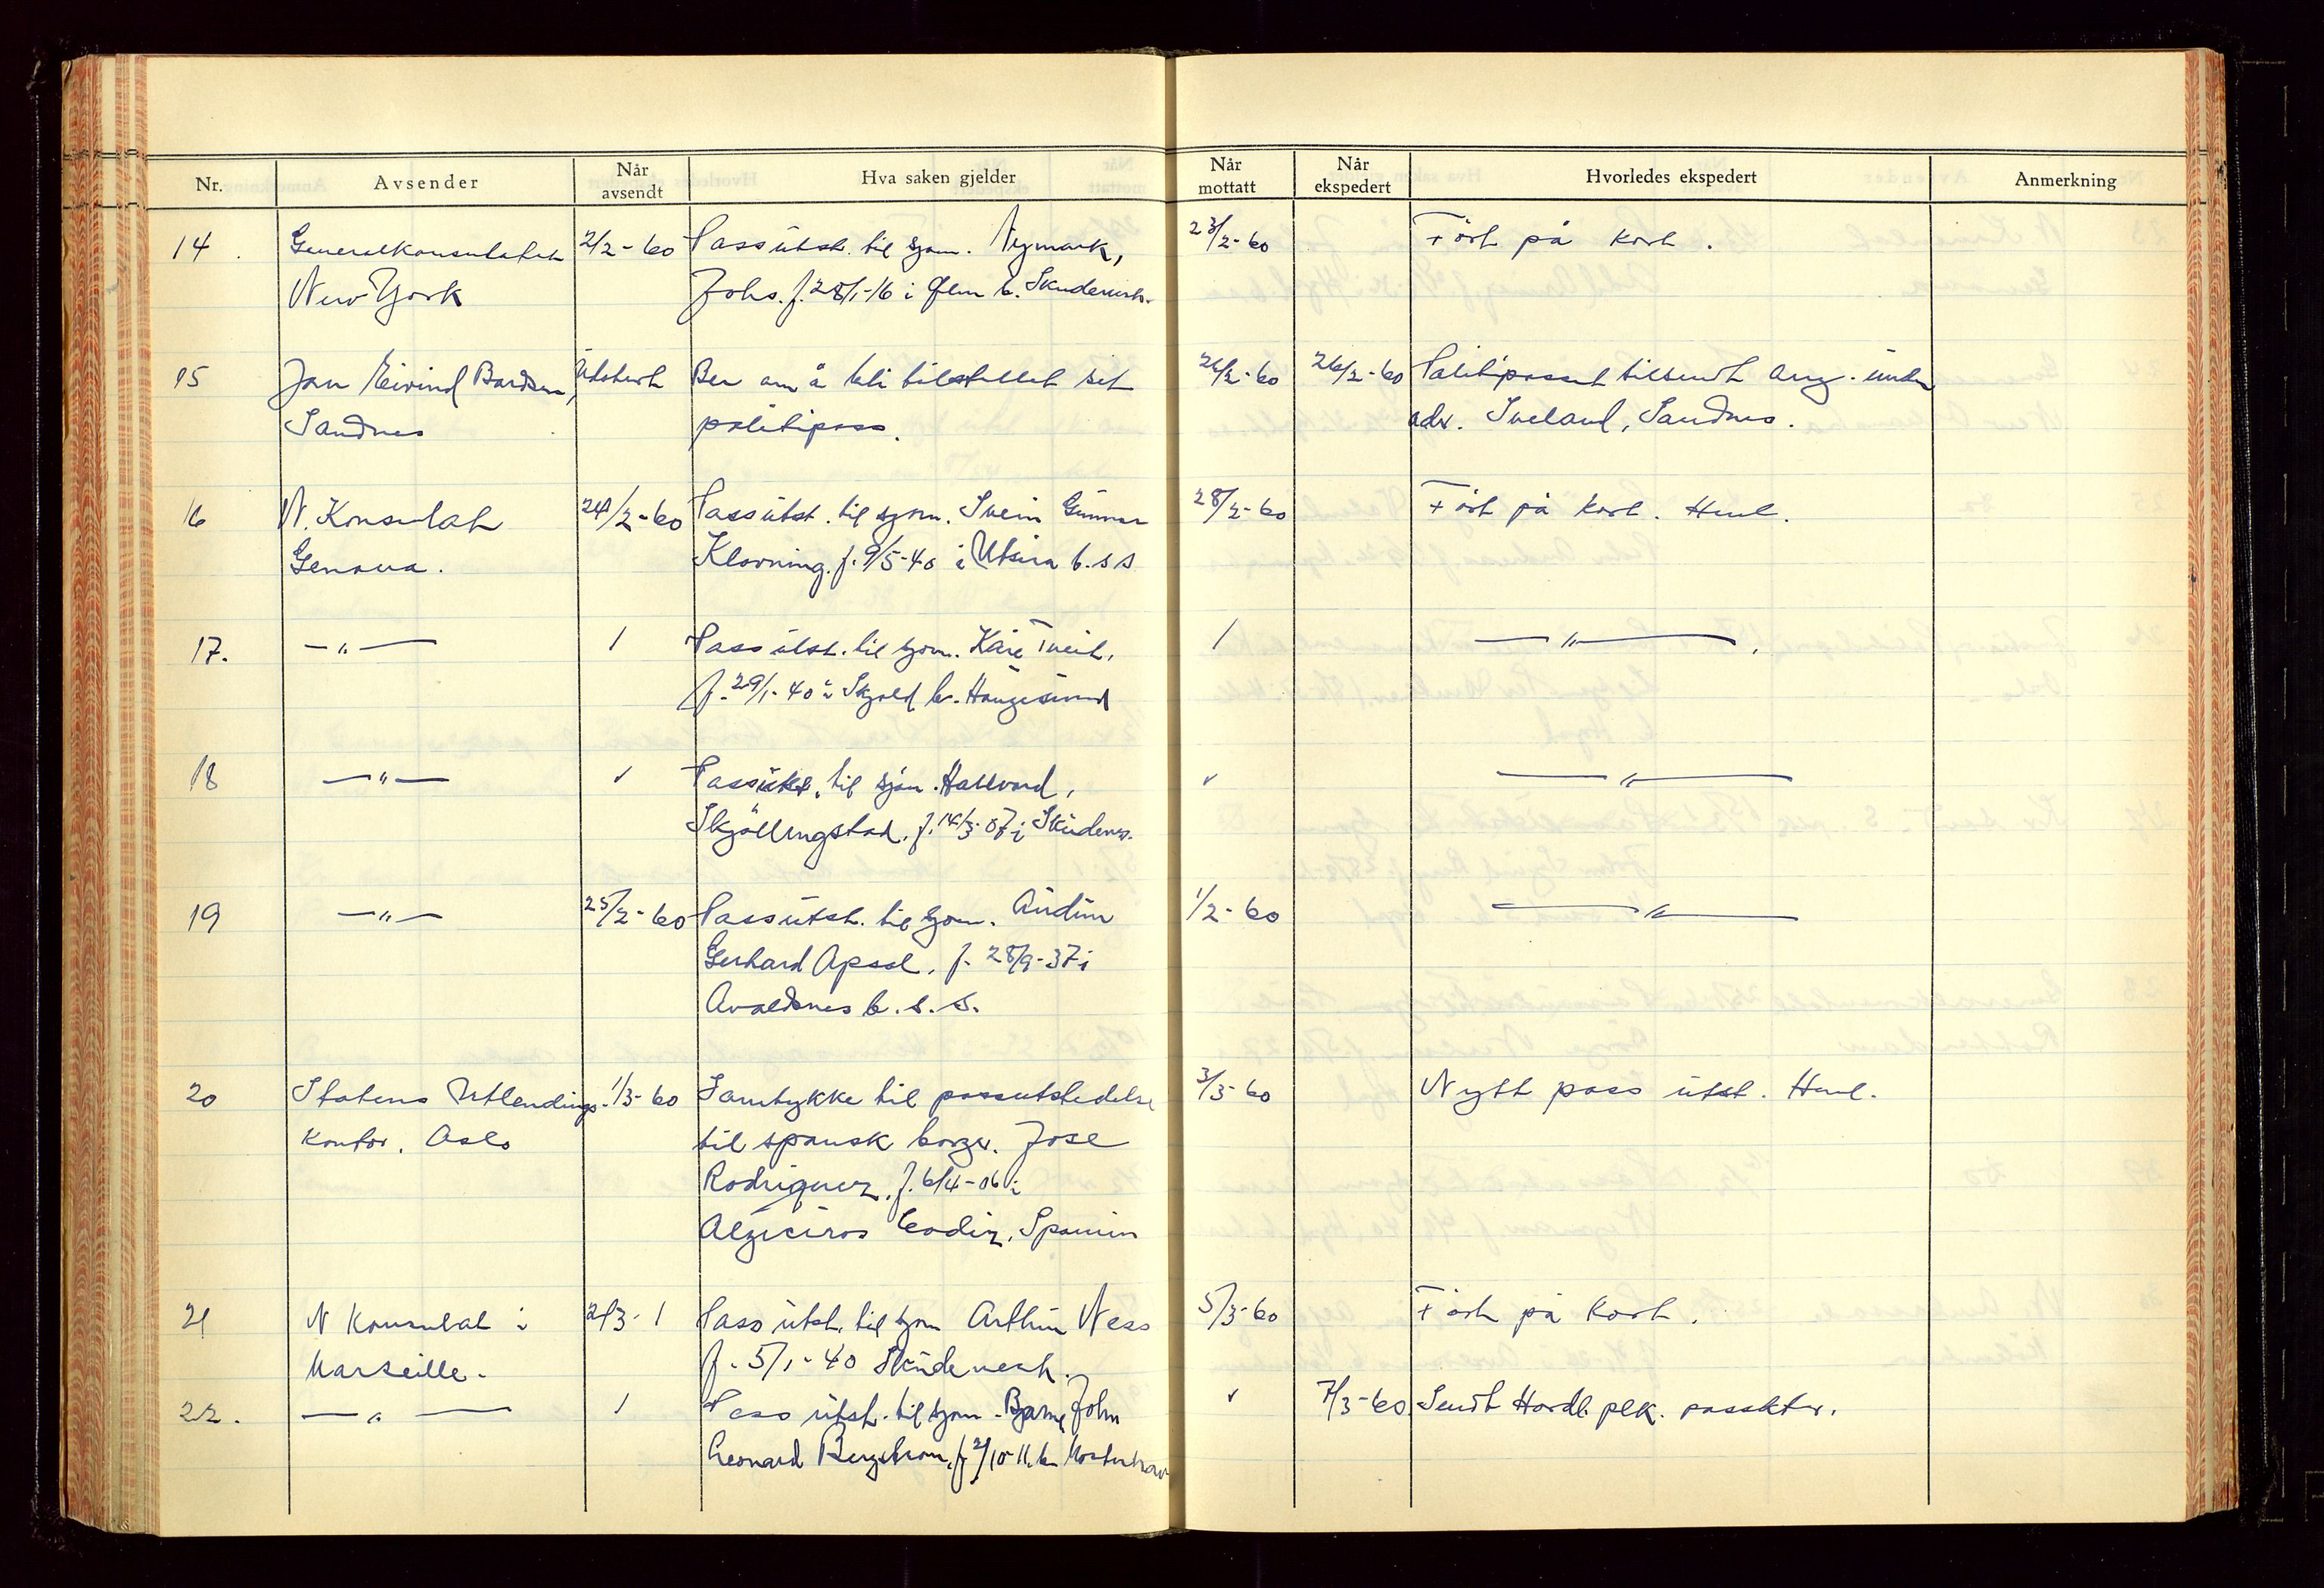 Nr. Avsender Når avsendt Hva saken gjelder Når mottatt Når ekspedert Hvorledes ekspedert Anmerkning
14. Generalkonsulatet 2/2-60 Pass utst. til sjøm. Nymark, 23/2-60 Ført på kort.
New York Johs. f. 28/1-16 i b. Skudenesh.
15 Jan Eivind Bardsen, Udatert Ber om å bli tilstillet sit 26/2-60 26/2-60 Politipasset tilsendt ang. under
Sandnes politipass. adr. Sveland, Sandnes.
16 N. Konsulat 24/2-60 Pass utst. til sjøm. Svein Gunnar 28/2-60 Ført på kort. Henl.
Genova. Klovning. f. 9/5-40 i Utsira b. s s
17. —„— / Pass utst. til sjøm. Kåre Tveit, / —„—.
f. 29/1-40 i Skjold b. Haugesund
18 —„— ✓ Pass utst. til sjøm. Hallvard, ✓ —„—
Skjöllingstad. f. 14/3-07 i Skudenes.
19 —„— 25/2-60 Pass utst. til sjøm. Audun 1/2-60 —„—
Gerhard Apsel, f. 28/9-37 i
Avaldsnes b. s. s.
20 Statens Utlendings- 1/3-60 Samtykke til passutstedelse 3/3-60 Nytt pass utst. Henl.
kontor, Oslo til spansk borger. Jose
Rodriguez, f. 6/4-06 i
Algiciros Cadiz, Spanien
21 N Konsulat i 2/3- / Pass utst. til sjøm Arthur Ness 5/3-60 Ført på kort.
Marseille. f. 5/1-40 Skudenesh.
22. —„— / Pass utst. til sjøm. Bjarne John ✓ 7/3-60 Sendt Hordl. plk. passktr.
Leonard Bergstrøm, f. 2/10-11. b.